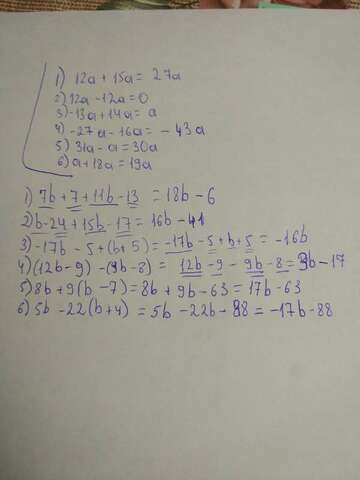 1) 12a + 15a = 27a
2) 12a - 12a = 0
3) -13a + 14a = a
4) -27a - 16a = - 43a
5) 31a - a = 30a
6) a + 18a = 19a
1) 7b + 7 + 11b - 13 = 18b - 6
2) b - 24 + 15b - 17 = 16b - 41
3) -17b - 5 + (b + 5) = -17b - 5 + b + 5 = -16b
4) (12b - 9) - (9b - 8) = 12b - 9 - 9b - 8 = 3b - 17
5) 8b + 9(b - 7) = 8b + 9b - 63 = 17b - 63
6) 5b - 22(b + 4) = 5b - 22b - 88 = -17b - 88